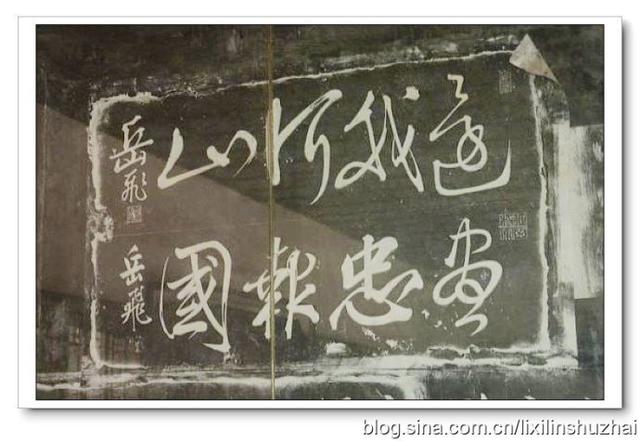 還我河山
岳飛
盡忠報國
岳飛
blog.sina.com.cn/lixilinshuzhai